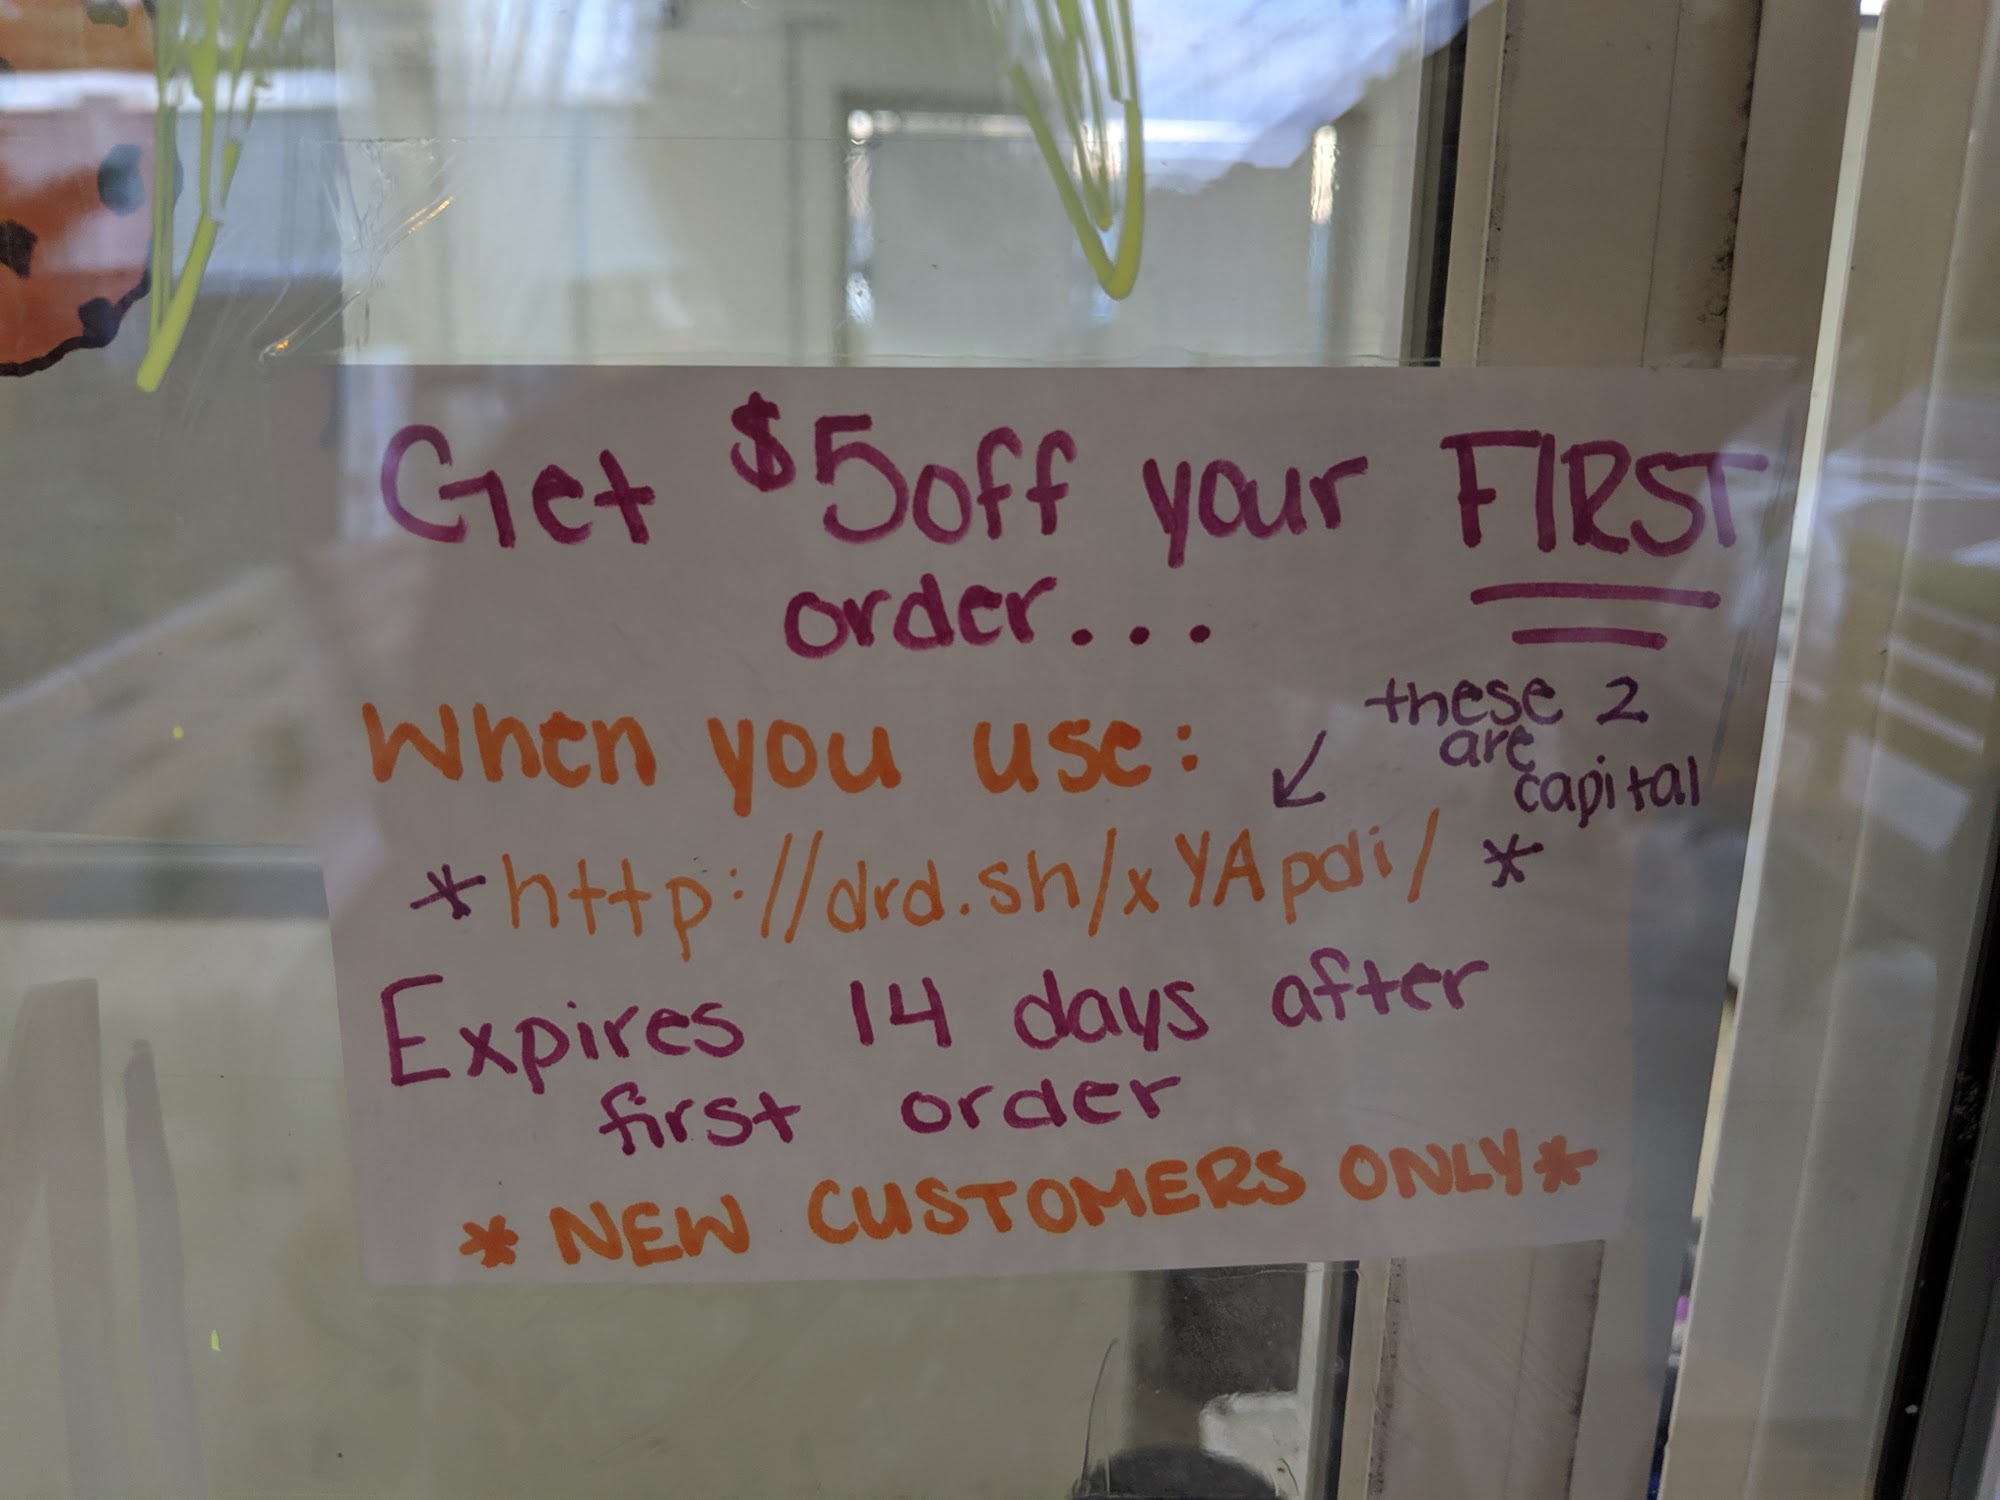 Get $5 off your FIRST
order...
When you use:
these 2
are
capital
*http://drd.sh/xYApdi/*
Expires 14 days after
first order
*NEW CUSTOMERS ONLY*